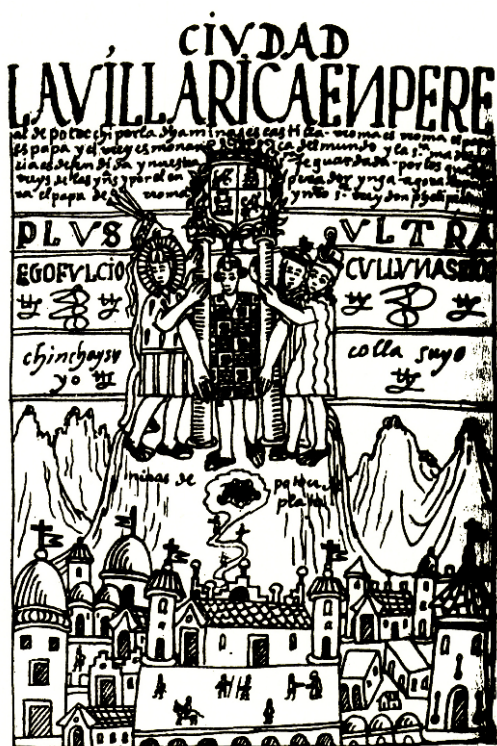 CIVDAD
LA VILLA RICA ENPERE
al de potocchi por la dha mina es castilla roma es roma el
es papa y el rey es monarca del mundo y la sta madre
es defendida y nuestra fe guardada por los
reys de las yñs y por el enperador ynga agora
el papa de roma y nro s. rey don phelipe
PLVS VLTRA
EGO FVLCIO CVLLVNAS EIO
chinchaysu
yo
colla suyo
minas de potocchi
plata